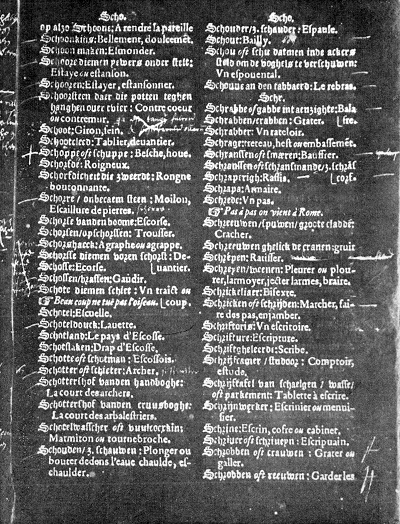 Scho.
op alzo Schoon: A rendre la pareille
Schoonkins: Bellement, doulcemẽt.
Schoon maken: Esmonder.
Schooze diemen pewers onder stelt:
Estaye ou estanson.
Schoozen: Estayer, estansonner.
Schoozsteen daer die potten teghen
hanghen over tvier: Contre coeur
ou contremur.
Schoot: Giron, sein.
Schootcleed: Tablier, deuantier.
Schoppe oft schuppe: Besche, houe.
Schozfde: Roigneux.
Schozfdicheit die zweerdt: Rongne
boutonnante.
Schozre / onbecaem steen: Moilon,
Escailure de pierres.
Schozse vanden boome: Escorce.
Schozsen / opschozssen: Trousser.
Schozshaeck: Agraphe ou agrappe.
Schozsse diemen vozen schozst: De-
Schosse: Ecorse. [uantier.
Schossen / brassen: Gaudir.
Schote diemen schiet: Vn traict ou
Beau coup ne tuë pas l'oiseau. [coup.
Schotel: Escuelle.
Schoteldouck: Lauette.
Schotland: Le pays d'Escosse.
Schotslaken: Drap d'Escosse.
Schotte oft schotman: Escossois.
Schotter oft schieter: Archer,
Schottershof vanden handboghe:
La court des archers.
Schottershof vanden cruusboghe:
La court des arbalestriers.
Schotelwasscher oft vuulcockin:
Marmiton ou tournebroche.
Schouden / 3. schauwen: Plonger ou
bouter dedons l'eaue chaulde, es-
chaulder.
Scho.
Schouder / 3. schauder: Espaule.
Schout: Bailly.
Schou oft schu datmen inde ackers
steld om de voghels te verschuwen:
Vn espouental.
Schoupe an den tabbaerd: Le rebras.
Schr.
Schrabbe oft gabbe int aenzighte: Bala
Schrabben / crabben: Grater. [fre.
Schrabber: Vn rateloir.
Schrage: treteau, hest ou embassemẽt.
Schransen oft smaeren: Bauffrer.
Schransen oft schransmande / 3. schraf
Schrapzigh: Raffis. [corfe.
Schrapa: Armaire.
Schrede: Vn pas.
Pas à pas on vient à Rome.
Schreeuwen / spuwen / groote cladde:
Cracher.
Schreeuwen ghelick de cranen: gruir
Schrepen: Ratisser.
Schreyen / weenen: Pleurer ou plou-
rer, larmoyer, iecter larmes, braire.
Schrickiaer: Bisexte.
Schricken oft schrijden: Marcher, fai-
re des pas, eniamber.
Schriftoris: Vn escritoire.
Schrifture: Escripture.
Schriftgheleerde: Scribe.
Schrijfcamer / studooz: Comptoir,
estude.
Schrijftafel van schaelgen / wasse /
oft parkement: Tablette à escrire.
Schrijnwercker: Escrinier ou menui-
sier.
Schrine: Escrin, cofre ou cabinet.
Schrivere oft schrivern: Escripuain.
Schrobben oft crauwen: Grater ou
galler.
Schrobben oft reeuwen: Garder les